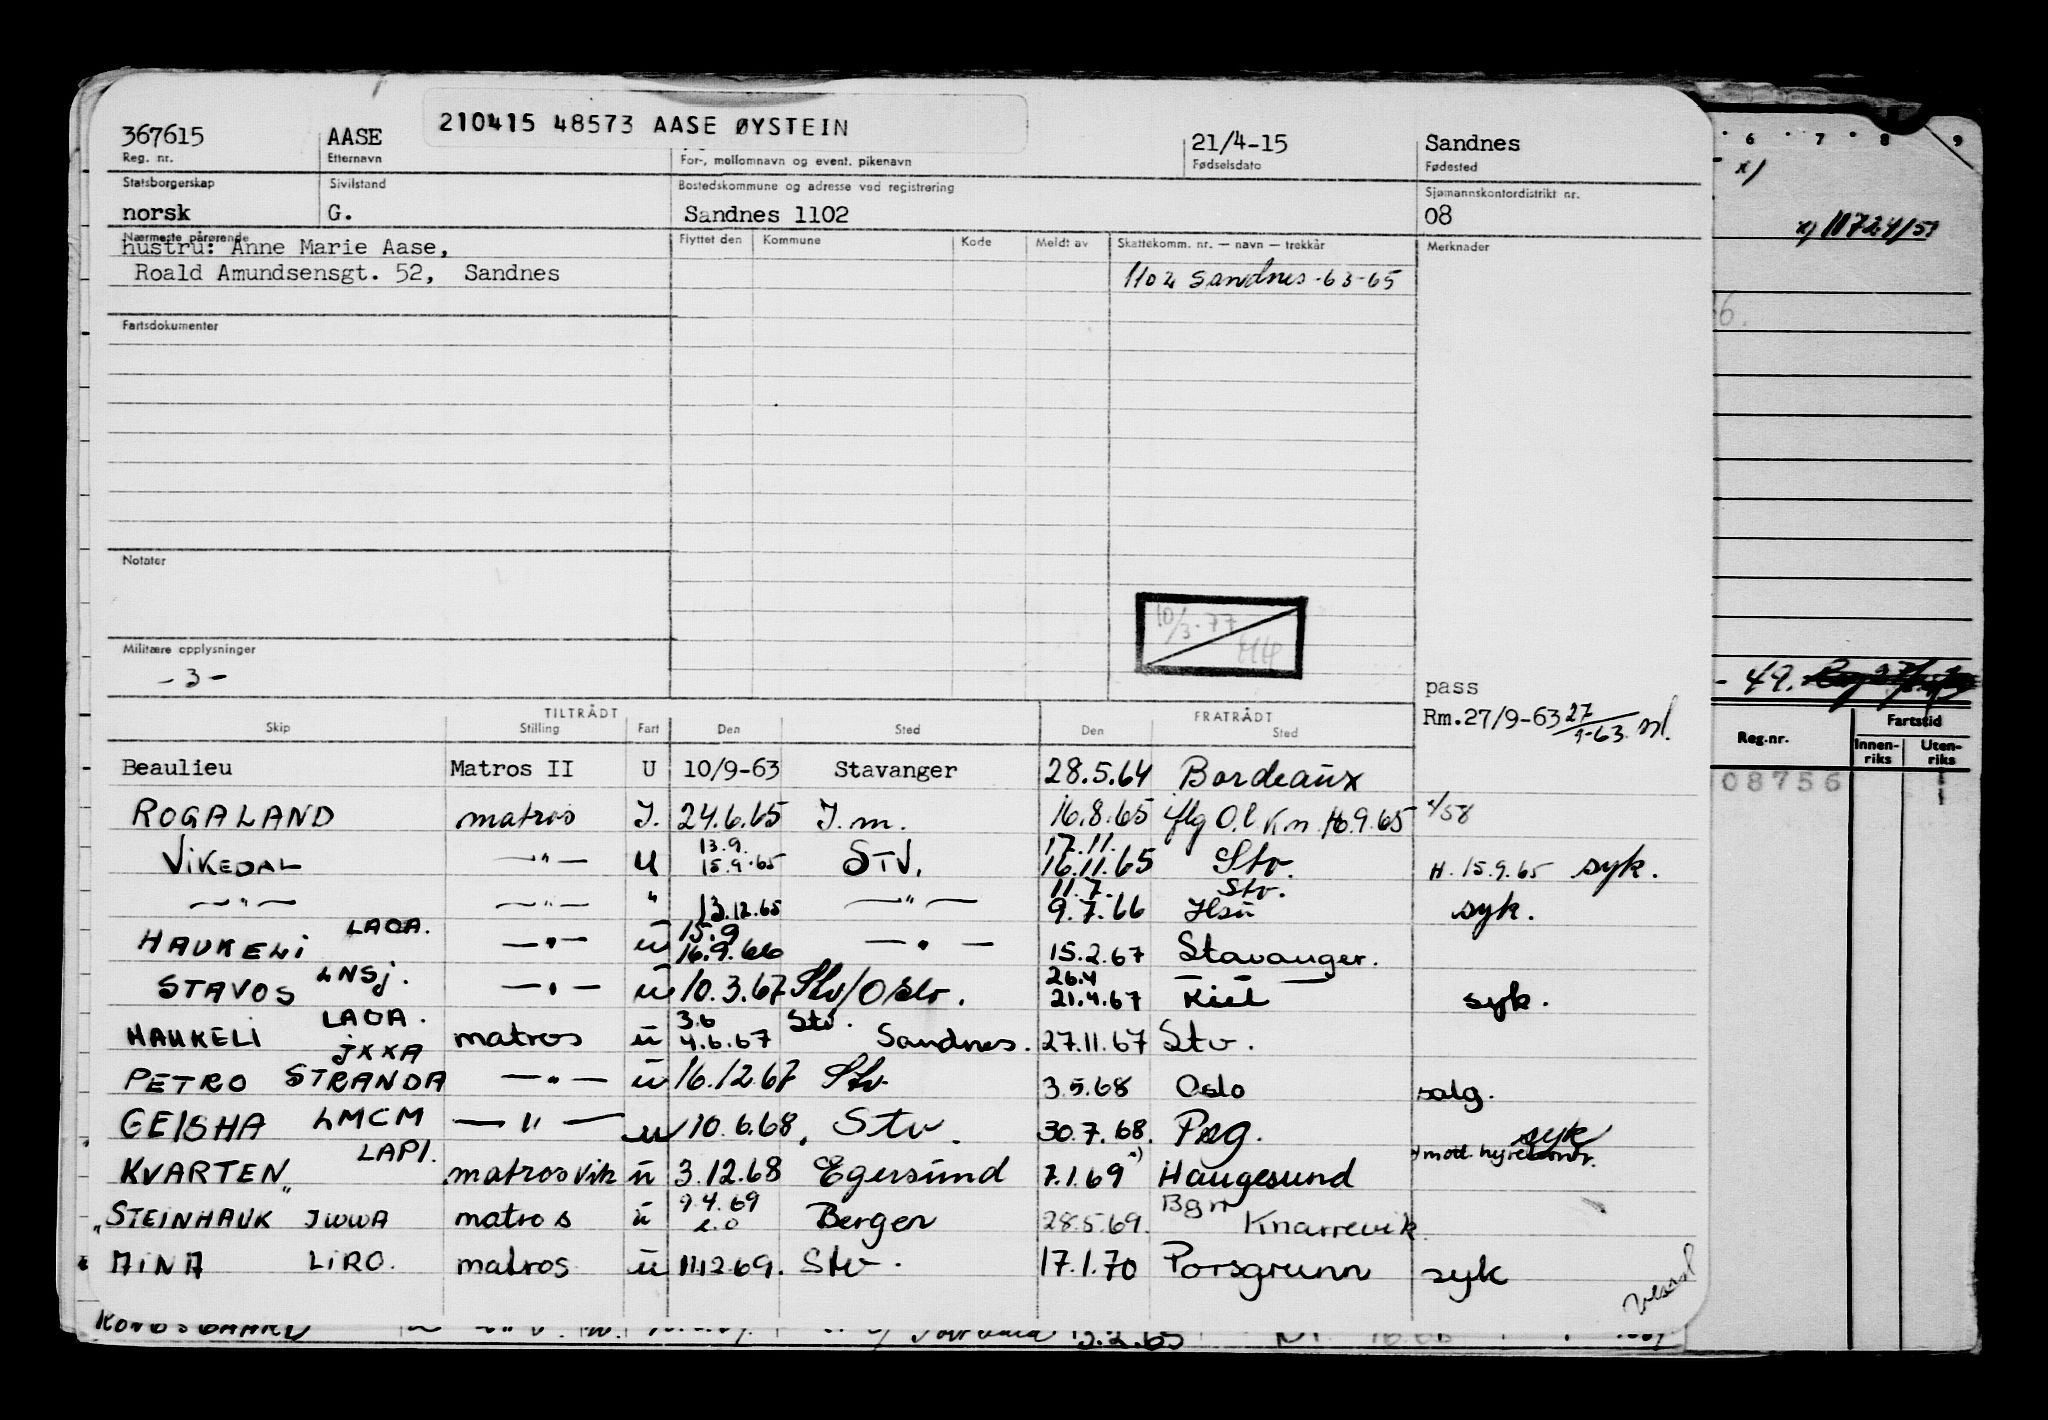 210415 48573 AASE ØYSTEIN
367615 AASE 21/4-15 Sandnes
Reg. nr. Etternavn For-, mellomnavn og event. pikenavn Fødselsdato Fødested
Statsborgerskap Sivilstand Bostedskommune og adresse ved registrering Sjømannskontordistrikt nr.
norsk G. Sandnes 1102 08
Nærmeste pårørende Flyttet den Kommune Kode Meldt av Skattekomm. nr. — navn — trekkår Merknader
hustru: Anne Marie Aase,
Roald Amundsensgt. 52, Sandnes 1102 Sandnes -63-65
Fartsdokumenter
Notater
10/3-77
Militære opplysninger
-3-
pass
Rm.27/9-63 27/9-63
TILTRÅDT FRATRÅDT
Skip Stilling Fart Den Sted Den Sted
Beaulieu Matros II U 10/9-63 Stavanger 28.5.64 Bordeaux
ROGALAND matros I. 24.6.65 I.m. 16.8.65 iflg O.l Km. 16.9.65 x/58
13.9. 17.11.
VIKEDAL —"— U 15.9.65 STV. 16.11.65 Stv. H. 15.9.65 syk.
11.7. Stv.
—"— —"— " 13.12.65 —"— 9.7.66 Hsu syk.
LAOA. 15.9
HAUKELI —"— u 16.9.66 —"— 15.2.67 Stavanger.
LNSJ. 26.4 — —
STAVOS —"— u 10.3.67 Stv/Oslo. 21.4.67 Kiel syk.
LAOA. 3.6 Stv.
HAUKELI matros u 4.6.67 Sandnes. 27.11.67 Stv.
JXXA
PETRO STRANDA —"— u 16.12.67 Stv 3.5.68 Oslo salg.
GEISHA LMCM —"— u 10.6.68. Stv. 30.7.68. Psg. syk
LAPI. x) x) mott. hyre
KVARTEN " matros vik u 3.12.68 Egersund 7.1.69 Haugesund
9.4.69 Bgn
"STEINHAUK JWWA matros u Bergen 28.5.69. Knarrevik.
AINA LIRO. matros u 11.12.69. Stv. 17.1.70 Porsgrunn syk
6 7 8 9
x)
x) 10724/51
- 49.
Reg.nr. Fartstid
Innen-riks Uten-riks
08756
13.2.65